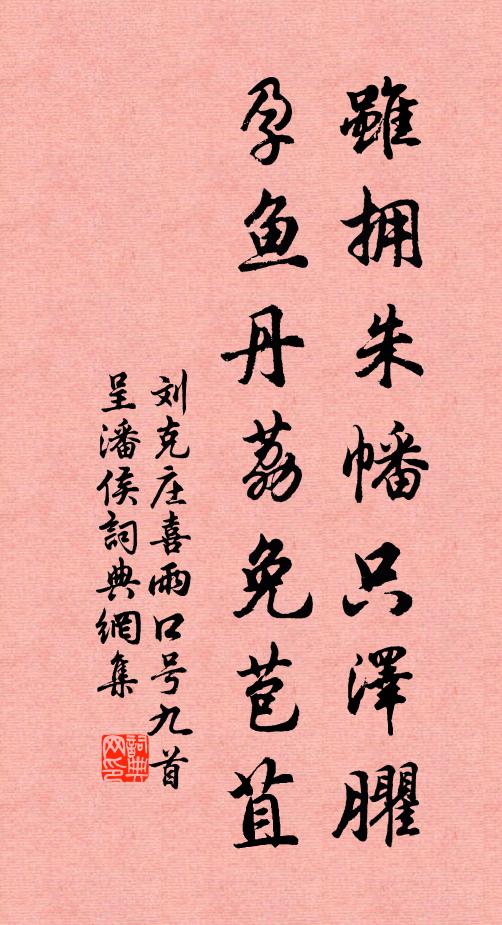 雖拥朱幡只澤臞
孕鱼丹荔免苞苴
刘克庄喜雨口号九首
呈潘侯詞典網集
詞典网印